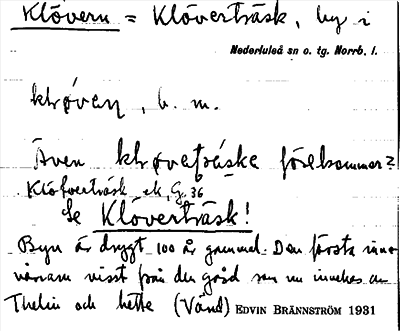 Klövern = Klöverträsk, by i
Nederluleå sn o. tg. Norrb. l.
kløven, b. m.
Även kløveträske förekommer?
Klöfverträsk ek. G. 36
Se Klöverträsk!
Byn är drygt 100 år gammal. Den första inne-
vånaren visst från den gård som nu innehas av
Thelin och hette (Vänd) EDVIN BRÄNNSTRÖM 1931